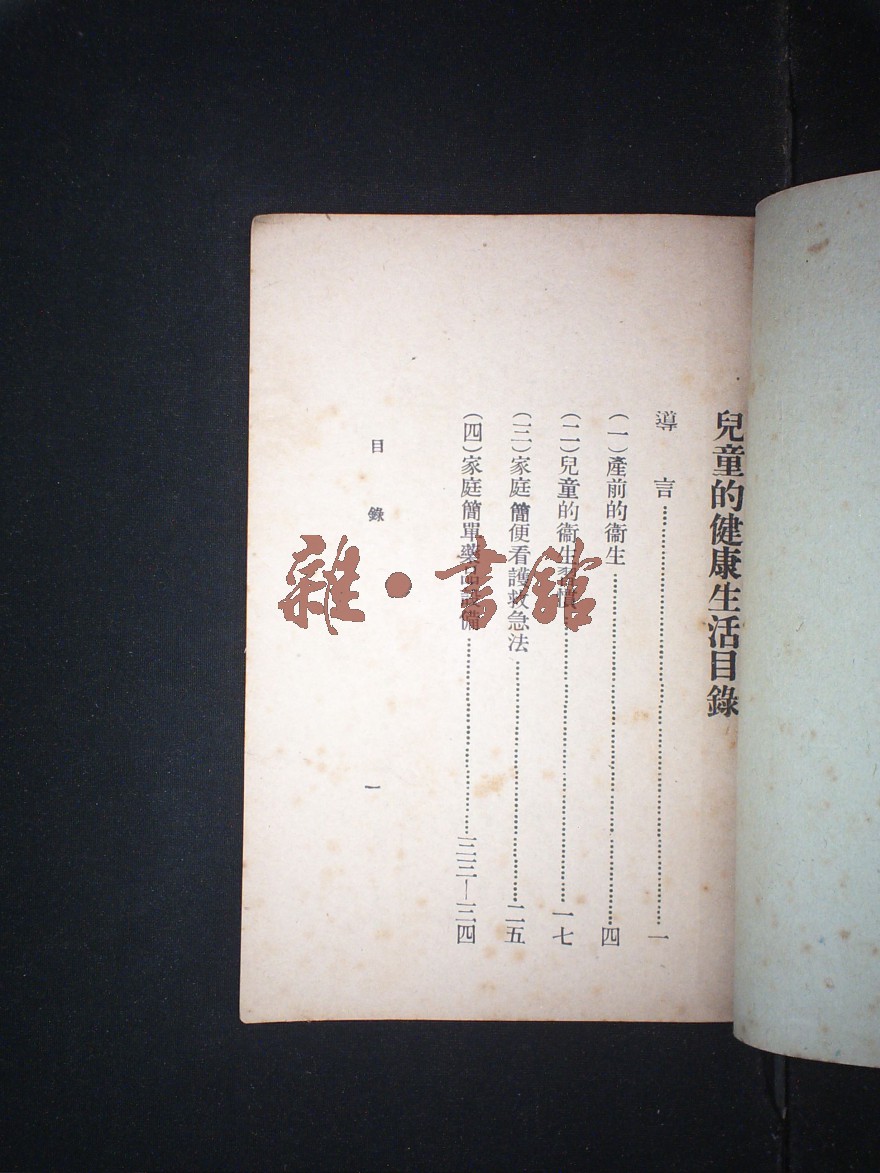 兒童的健康生活目錄
導言……一
（一）產前的衞生……四
（二）兒童的衞生習慣……一七
（三）家庭簡便看護救急法……二五
（四）家庭簡單藥品設備……三三—三四
目錄
一
雜·書館